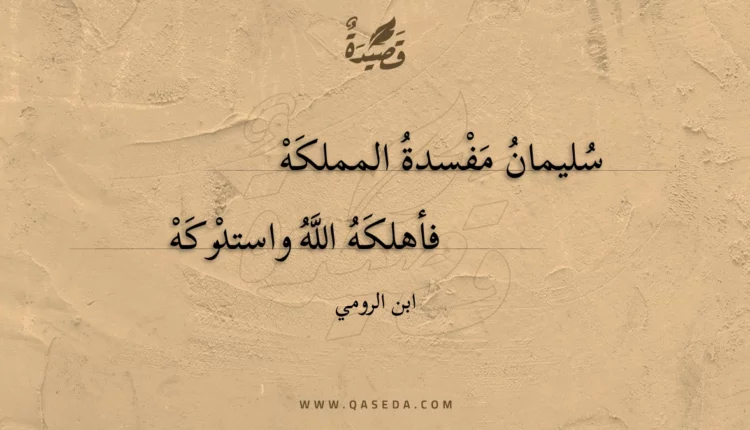 قَصِيْدَةٌ
سُليمانُ مَفْسدةُ المملكَهْ
فأهلكَهُ اللَّهُ واستلْوكَهْ
ابن الرومي
WWW.QASEDA.COM